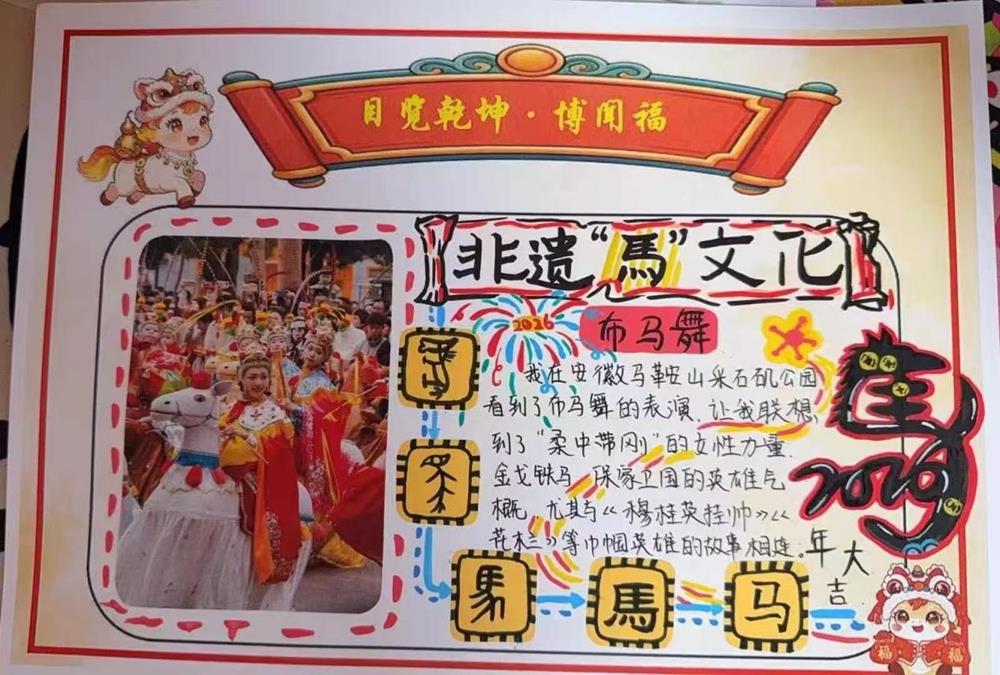 目览乾坤·博闻福
非遗“馬”文化
2026
布马舞
我在安徽马鞍山采石矶公园
看到了布马舞的表演,让我联想
到了“柔中带刚”的女性力量.
金戈铁马,保家卫国的英雄气
概,尤其与《穆桂英挂帅》《
花木兰》等巾帼英雄的故事相连。
馬馬马
2026
年大
吉
福 福